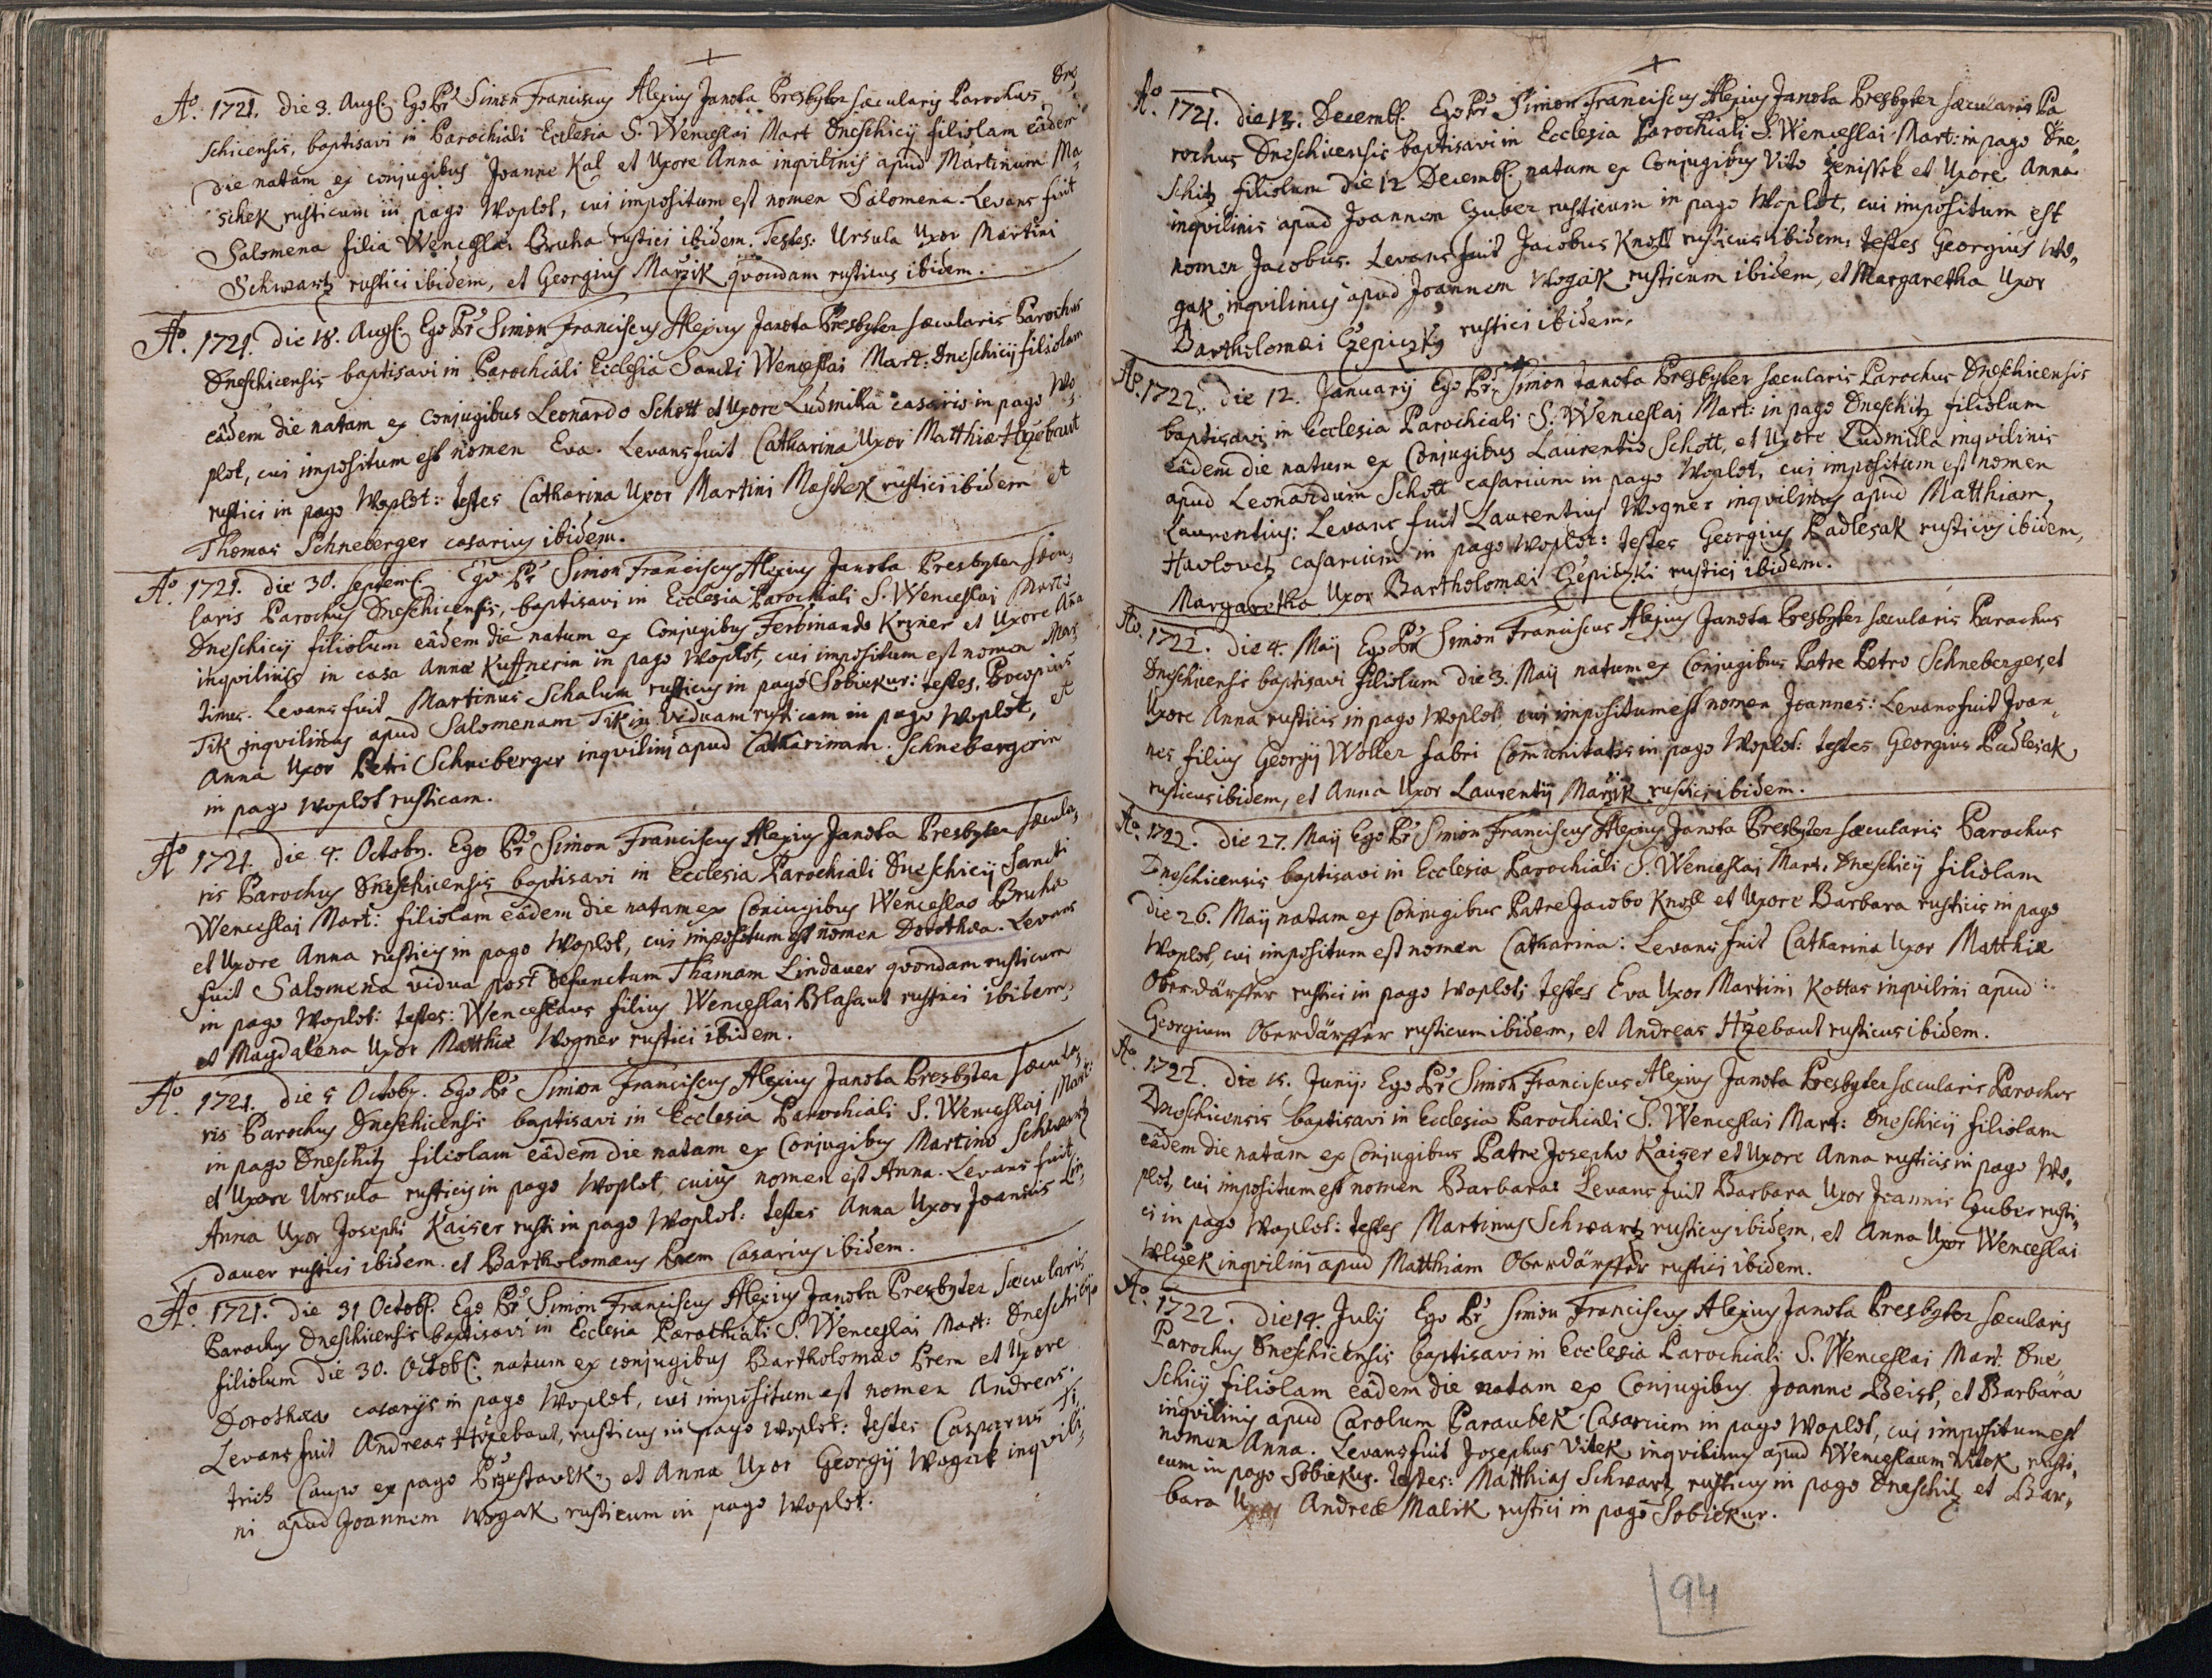 Aº. 1721. die 3. Aug. Ego Pr Simon Franciscus Alexius Janota Presbyter sæcularis Parochus Dne,
schicensis, baptisavi in Parochiali Ecclesia S. Wenceslai Mart Dneschicij filiolam eâdem
die natam ex conjugibus Joanne Kal et Uxore Anna inqvilinis apud Martinum Ma,
schek rusticum in pago Woplot, cui impositum est nomen Salomena. Levans fuit
Salomena filia Wenceslai Bruha rustici ibidem. Testes: Ursula Uxor Martini
Schwartz rustici ibidem, et Georgius Marzik qvondam rusticus ibidem.
Aº. 1721. die 18. Aug. Ego Pr Simon Franciscus Alexius Janota Presbyter sæcularis Parochus
Dneschicensis baptisavi in Parochiali Ecclesia Sancti Wenceslai Mart: Dneschicij filiolam
eâdem die natam ex conjugibus Leonardo Schott et Uxore Ludmilla casariis in pago Wo,
plot, cui impositum est nomen Eva. Levans fuit Catharina Uxor Matthiæ Hrzebaut
rustici in pago Woplot: testes Catharina Uxor Martini Maschek rustici ibidem et
Thomas Schneberger casarius ibidem.
Aº. 1721. die 30. Septem. Ego Pr Simon Franciscus Alexius Janota Presbyter sæcu,
laris Parochus Dneschicensis, baptisavi in Ecclesia Parochiali S. Wenceslai Mart:
Dneschicij filiolum eâdem die natum ex Conjugibus Ferdinando Krzner et Uxore Aña
inqvilinis in casa Annæ Kuffnerin in pago Woplot, cui impositum est nomen Mar,
tinus. Levans fuit Martinus Schalum rusticus in pago Sobiekur: testes, Procopius
Tik inqvilinus apud Salomenam Tikin viduam rusticam in pago Woplot, et
Anna Uxor Petri Schneberger inqvilini apud Catharinam Schnebergerin
in pago Woplot rusticam.
Aº 1721. die 4. Octobr. Ego Pr Simon Franciscus Alexius Janota Presbyter sæcula,
ris Parochus Dneschicensis baptisavi in Ecclesia Parochiali Dneschicij Sancti
Wenceslai Mart: filiolam eâdem die natam ex Conjugibus Wenceslao Bruha
et Uxore Anna rusticis in pago Woplot, cui impositum est nomen Dorothea. Levans
fuit Salomena vidua post defunctum Thamam Lindauer qvondam rusticum
in pago Woplot: testes: Wenceslaus filius Wenceslai Blahaut rustici ibidem,
et Magdalena Uxor Matthiæ Wogner rustici ibidem.
Aº. 1721. die 5 Octobr. Ego Pr Simon Franciscus Alexius Janota Presbyter sæcula,
ris Parochus Dneschicensis baptisavi in Ecclesia Parochiali S. Wenceslai Mart:
in pago Dneschitz filiolam eâdem die natam ex Conjugibus Martino Schwartz
et Uxore Ursula rusticis in pago Woplot, cuius nomen est Anna. Levans fuit
Anna Uxor Josephi Kaiser rusti in pago Woplot: testes Anna Uxor Joannis Lin,
dauer rustici ibidem. et Bartholomæus Prem Casarius ibidem.
Aº. 1721. die 31 Octob. Ego Pr Simon Franciscus Alexius Janota Presbyter sæcularis
Parochus Dneschicensis baptisavi in Ecclesia Parochiali S. Wenceslai Mart: Dneschicij
filiolum die 30. Octob. natum ex conjugibus Bartholomæo Prem et Uxore
Dorothea casarijs in pago Woplot, cui impositum est nomen Andreas.
Levans fuit Andreas Hrzebaut, rusticus in pago Woplot: testes Casparus Di
trich Caupo ex pago Przestavlk, et Anna Uxor Georgij Wogak inqvili,
ni apud Joannem Wogak rusticum in pago Woplot.
Aº. 1721. die 13. Decemb. Ego Pr Simon Franciscus Alexius Janota Presbyter sæcularis Pa
rochus Dneschicensis baptisavi in Ecclesia Parochiali S. Wenceslai Mart: in pago Dne,
schitz filiolum die 12 Decemb. natum ex Conjugibus Vito Zenissek et Uxore Anna
inqvilinis apud Joannem Czuber rusticum in pago Woplot, cui impositum est
nomen Jacobus. Levans fuit Jacobus Knoll rusticus ibidem: testes Georgius Wo,
gak, inqvilinus apud Joannem Wogak rusticum ibidem, et Margaretha Uxor
Bartholomæi Czepiczky rustici ibidem.
Aº. 1722. die 12. Januarij Ego Pr Simon Janota Presbyter sæcularis Parochus Dneschicensis
baptisavi in Ecclesia Parochiali S. Wenceslai Mart: in pago Dneschitz filiolum
eâdem die natum ex Conjugibus Laurentio Schott, et Uxore Ludmilla inqvilinis
apud Leonardum Schott casarium in pago Woplot, cui impositum est nomen
Laurentius: Levans fuit Laurentius Wogner inqvilinus apud Matthiam,
Havlovetz casarium in pago Woplot: testes Georgius Padlesak rusticus ibidem,
Margaretha Uxor Bartholomæi Czepiczki rustici ibidem.
Aº. 1722. die 4. Maij Ego Pr Simon Franciscus Alexius Janota Presbyter sæcularis Parochus
Dneschicensis baptisavi filiolum die 3. Maij natum ex Conjugibus Patre Petro Schneberger, et
Uxore Anna rusticis in pago Woplot cui impositum est nomen Joannes: Levans fuit Joan,
nes filius Georgij Woller fabri Comunitatis in pago Woplot: testes Georgius Padlesak
rusticus ibidem, et Anna Uxor Laurentij Marzik rustici ibidem.
Aº. 1722. die 27. Maij Ego Pr Simon Franciscus Alexius Janota Presbyter sæcularis Parochus
Dneschicensis baptisavi in Ecclesia Parochiali S. Wenceslai Mart. Dneschicij filiolam
die 26. Maij natam ex Conjugibus Patre Jacobo Knoll et Uxore Barbara rusticis in pago
Woplot, cui impositum est nomen Catharina: Levans fuit Catharina Uxor Matthiæ
Oberdärffer rustici in pago Woplot; testes Eva Uxor Martini Kottas inqvilini apud:
Georgium Oberdärffer rusticum ibidem, et Andreas Hrzebaut rusticus ibidem.
Aº 1722. die 15. Junij: Ego Pr Simon Franciscus Alexius Janota Presbyter sæcularis Parochus
Dneschicensis baptisavi in Ecclesia Parochiali S. Wenceslai Mart: Dneschicij filiolam
eâdem die natam ex Conjugibus Patre Josepho Kaiser et Uxore Anna rusticis in pago Wo,
plot, cui impositum est nomen Barbara: Levans fuit Barbara Uxor Joannis Czuber rusti,
ci in pago Woplot: testes Martinus Schwartz rusticus ibidem, et Anna Uxor Wenceslai
Wlczek inqvilini apud Matthiam Oberdärffer rustici ibidem.
Aº. 1722. die 14. July Ego Pr Simon Franciscus Alexius Janota Presbyter sæcularis
Parochus Dneschicensis baptisavi in Ecclesia Parochiali S. Wenceslai Mart. Dne
schicij filiolam eâdem die natam ex Conjugibus Joanne Beist, et Barbara
inqvilinis apud Carolum Paraubek Casarium in pago Woplot, cui impositum est
nomen Anna. Levans fuit Josephus Vitek inqvilinus apud Wenceslaum Vitek rusti,
cum in pago Sobiekur. testes: Matthias Schwartz rusticus in pago Dneschitz et Bar,
bara Uxor Andreæ Malik rustici in pago Sobiekur.
94